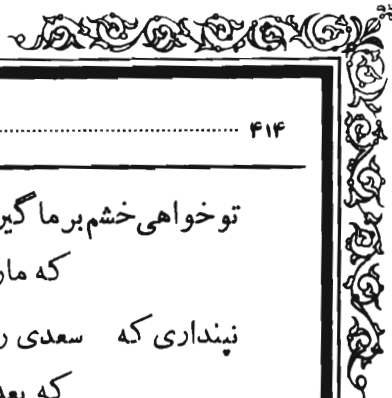 ۴۱۴
تو خواهی خشم بر ما گیر
که ما
نپنداری که سعدی
که بعد